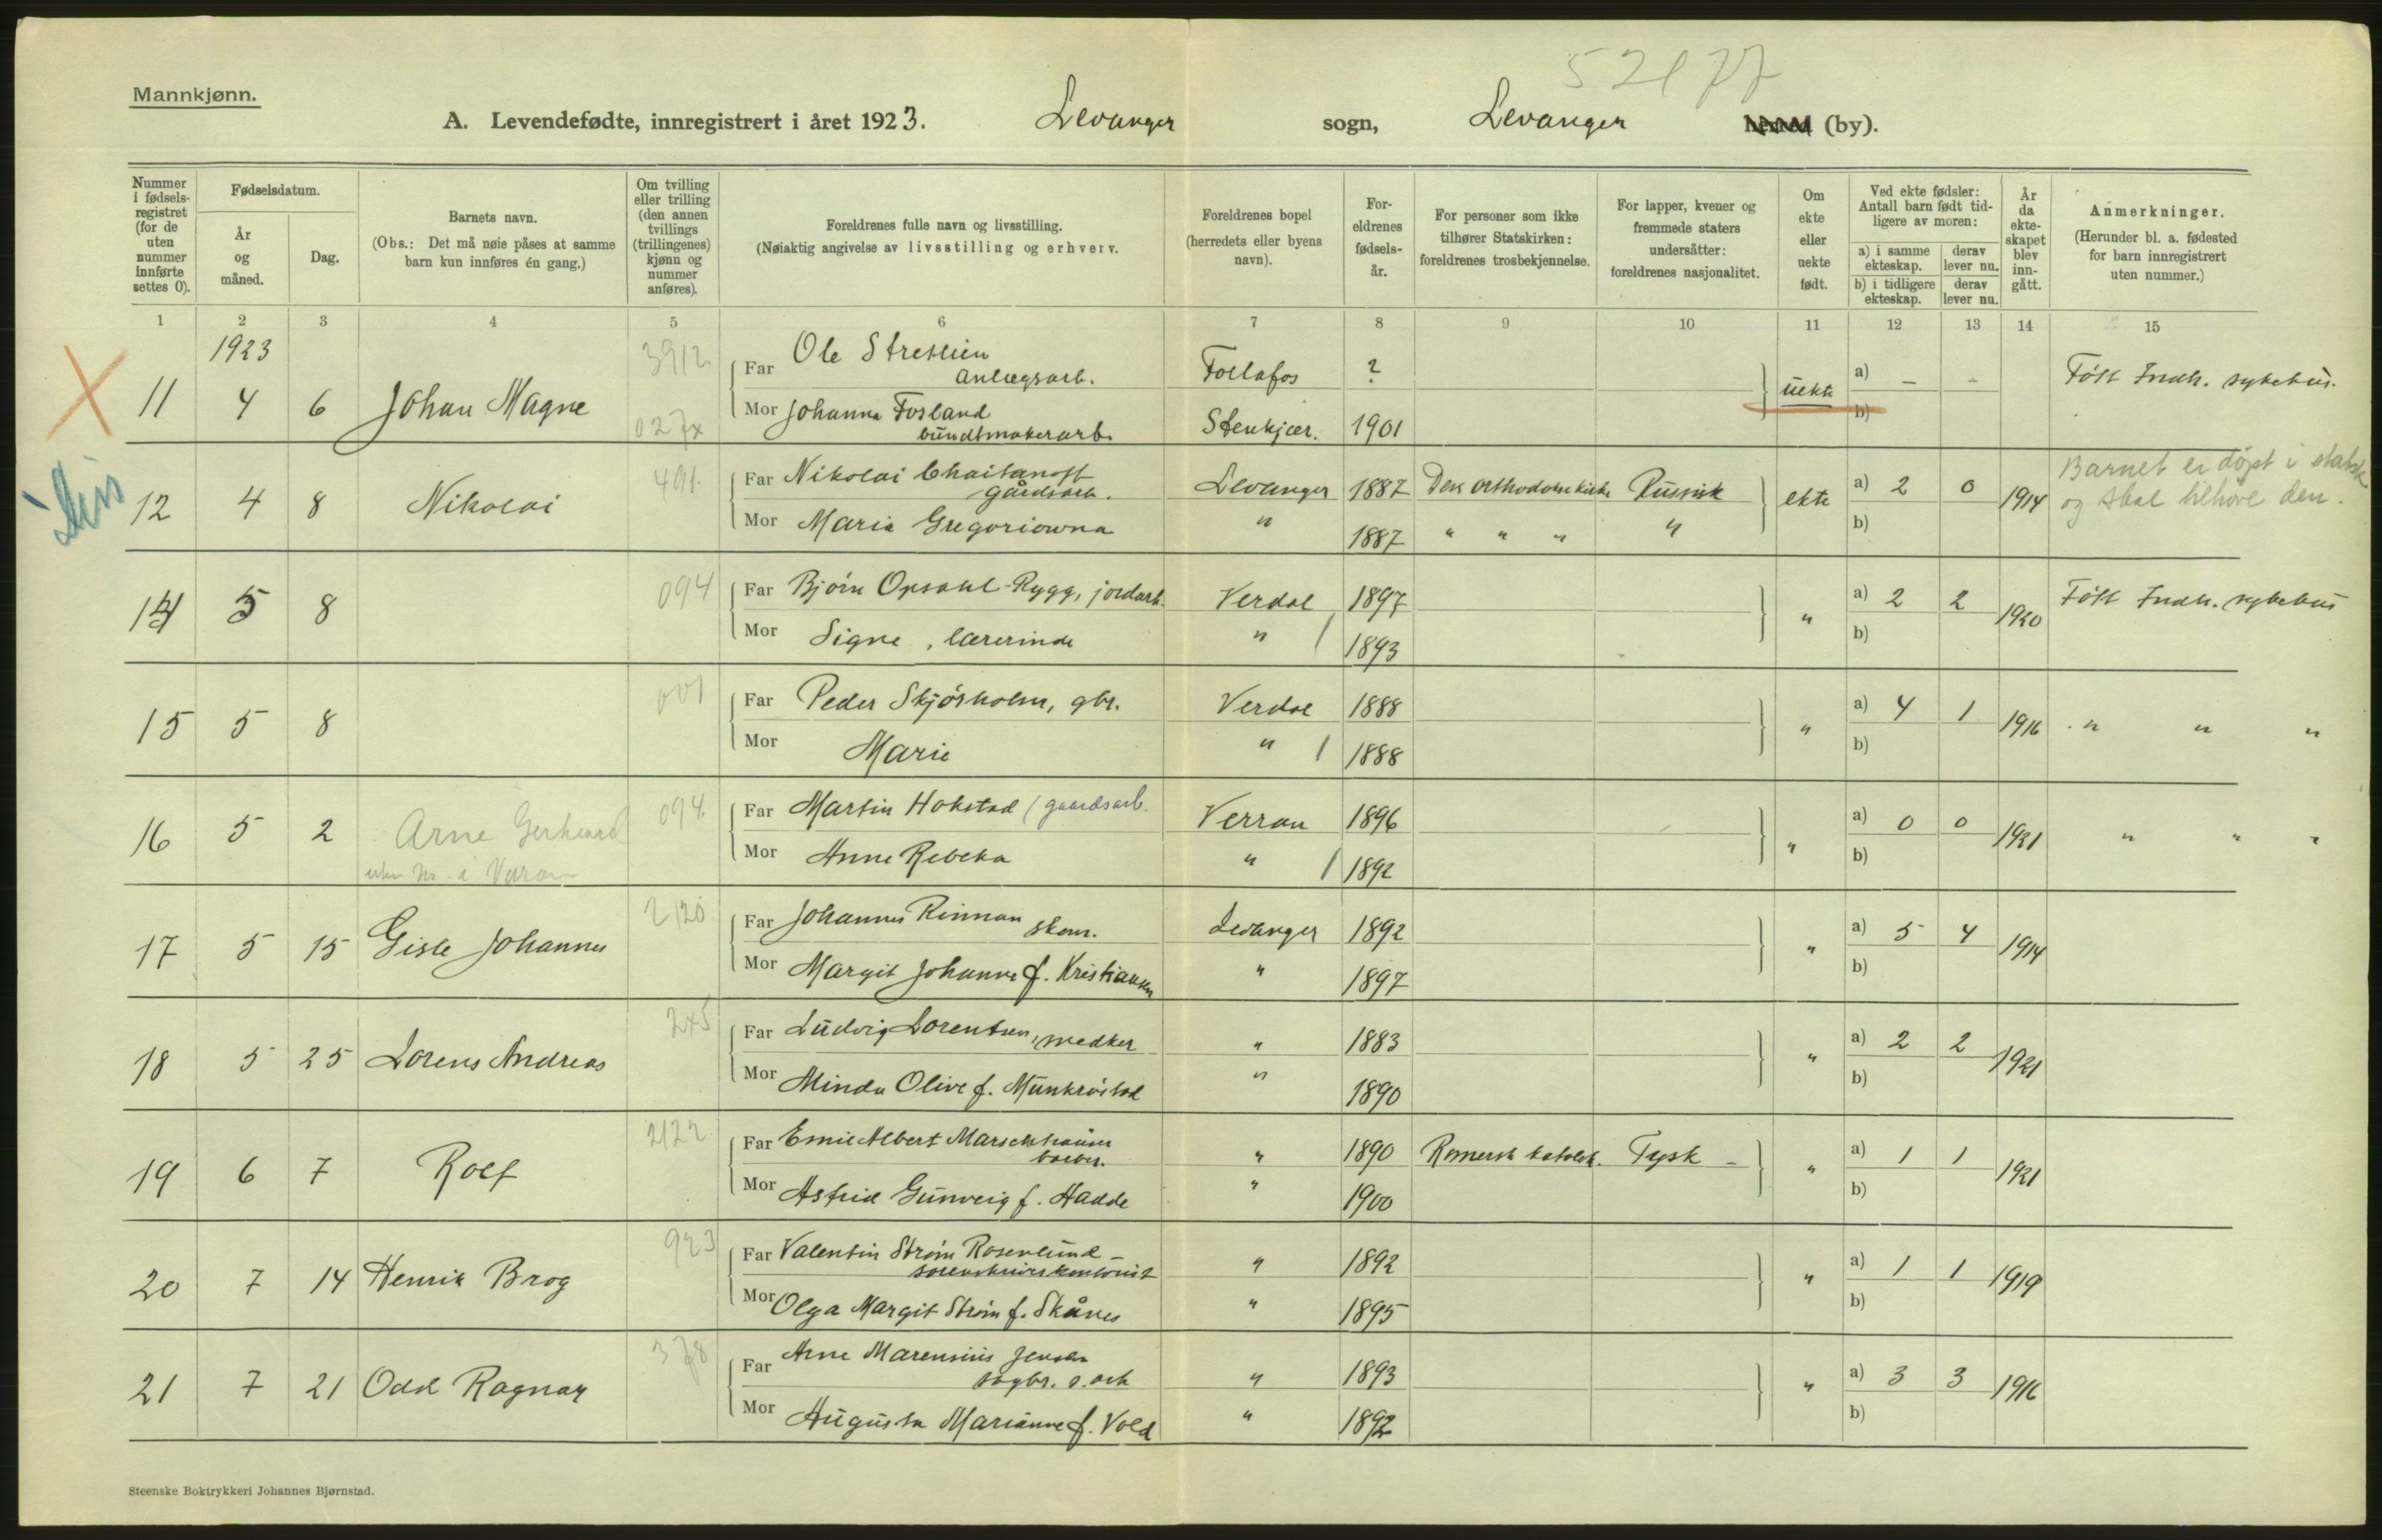 52177
Mannkjønn.
A. Levendefødte, innregistrert i året 1923. Levanger sogn, Levanger herred (by).
Nummer i fødselsregistret (for de uten nummer innførte settes 0).
Fødselsdatum.
År og måned.
Dag.
Barnets navn.
(Obs.: Det må nøie påses at samme barn kun innføres én gang.)
Om tvilling eller trilling (den annen tvillings (trillingenes) kjønn og nummer anføres).
Foreldrenes fulle navn og livsstilling.
(Nøiaktig angivelse av livsstilling og erhverv.
Foreldrenes bopel (herredets eller byens navn).
Foreldrenes fødselsår.
For personer som ikke tilhører Statskirken: foreldrenes trosbekjennelse.
For lapper, kvener og fremmede staters undersåtter: foreldrenes nasjonalitet.
Om ekte eller uekte født.
Ved ekte fødsler: Antall barn født tidligere av moren:
a) i samme ekteskap. derav lever nu.
b) i tidligere ekteskap. derav lever nu.
År da ekteskapet blev inngått.
Anmerkninger.
(Herunder bl. a. fødested for barn innregistrert uten nummer.)
1 2 3 4 5 6 7 8 9 10 11 12 13 14 15
1923
11 4 6 Johan Magne 3912. Far Ole Stretlien anlægsarb. Follafos ? uekte a) – – Født Indh. sykehus.
Mor Johanna Fosland bundtmakerarb. Stenkjær. 1901 b)
12 4 8 Nikolai 491. Far Nikolai Chaitanoff gårdsarb. Levanger 1887 Den orthodokse kirke Russisk ekte a) 2 0 1914 Barnet er døpt i statsk
og skal tilhøre den.
Mor Maria Gregoriowna " 1887 " " " " b)
14 5 8 094 Far Bjørn Opsahl-Rygg, jordarb. Verdal 1897 " a) 2 2 1920 Født Indh. sykehus
Mor Signe, lærerinde " 1893 b)
15 5 8 001 Far Peder Skjørholm, gbr. Verdal 1888 " a) 4 1 1916 " " "
Mor Marie " 1888 b)
16 5 2 Arne Gerhard 094. Far Martin Hokstad (gaardsarb. Verran 1896 " a) 0 0 1921 " " "
Mor Anne Rebeka " 1892 b)
17 5 15 Gisle Johannes 2120 Far Johannes Rinnan skom. Levanger 1892 " a) 5 4 1914
Mor Margit Johanne f. Kristiansen " 1897 b)
18 5 25 Lorens Andreas Far Ludvig Lorentsen, smedker " 1883 " a) 2 2 1921
Mor Minda Olive f. Munkrøstad " 1890 b)
19 6 7 Rolf 2122 Far Emil Albert Marschhäuser barber. " 1890 Romersk katolsk. Tysk – " a) 1 1 1921
Mor Astrid Gunveig f. Hadde " 1900 b)
20 7 14 Henrik Brog 923 Far Valentin Strøm Rosenlund sorenskriverkontorist " 1892 " a) 1 1 1919
Mor Olga Margit Strøm f. Skånes " 1895 b)
21 7 21 Odd Ragnar 378 Far Arne Marensius Jensen sagbr. s. arb " 1893 " a) 3 3 1916
Mor Augusta Marianne f. Vold " 1892 b)
Steenske Boktrykkeri Johannes Bjørnstad.